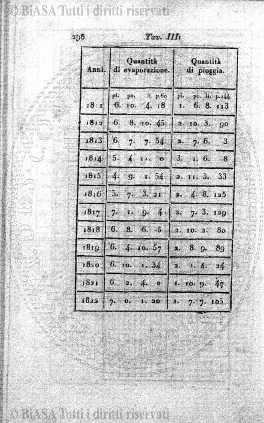 © BiASA Tutti i diritti riservati
298 Tav. III.
Anni. Quantità di evaporazione. Quantità di pioggia.
pi. po. li. p.60 pi. po. li. p.144
1811 6. 10. 4. 18 1. 6. 8. 113
1812 6. 8. 10. 45 2. 10. 3. 90
1813 6. 7. 7. 54 2. 7. 6. 3
1814 5. 4 11. 0 3. 1. 6. 8
1815 4. 9. 1. 54 2. 11. 3. 33
1816 5. 7. 3. 21 2. 4. 8. 125
1817 7. 1. 9. 4 2. 7. 3. 129
1818 6. 8. 6. 6 2. 10. 2. 80
1819 6. 4. 10. 57 2. 8. 9. 89
1820 6. 10. 1. 34 2. 1. 4. 24
1821 6. 2. 4. 0 1. 10. 9. 47
1822 7. 0. 1. 20 1. 7. 7. 105
© BiASA Tutti i diritti riservati